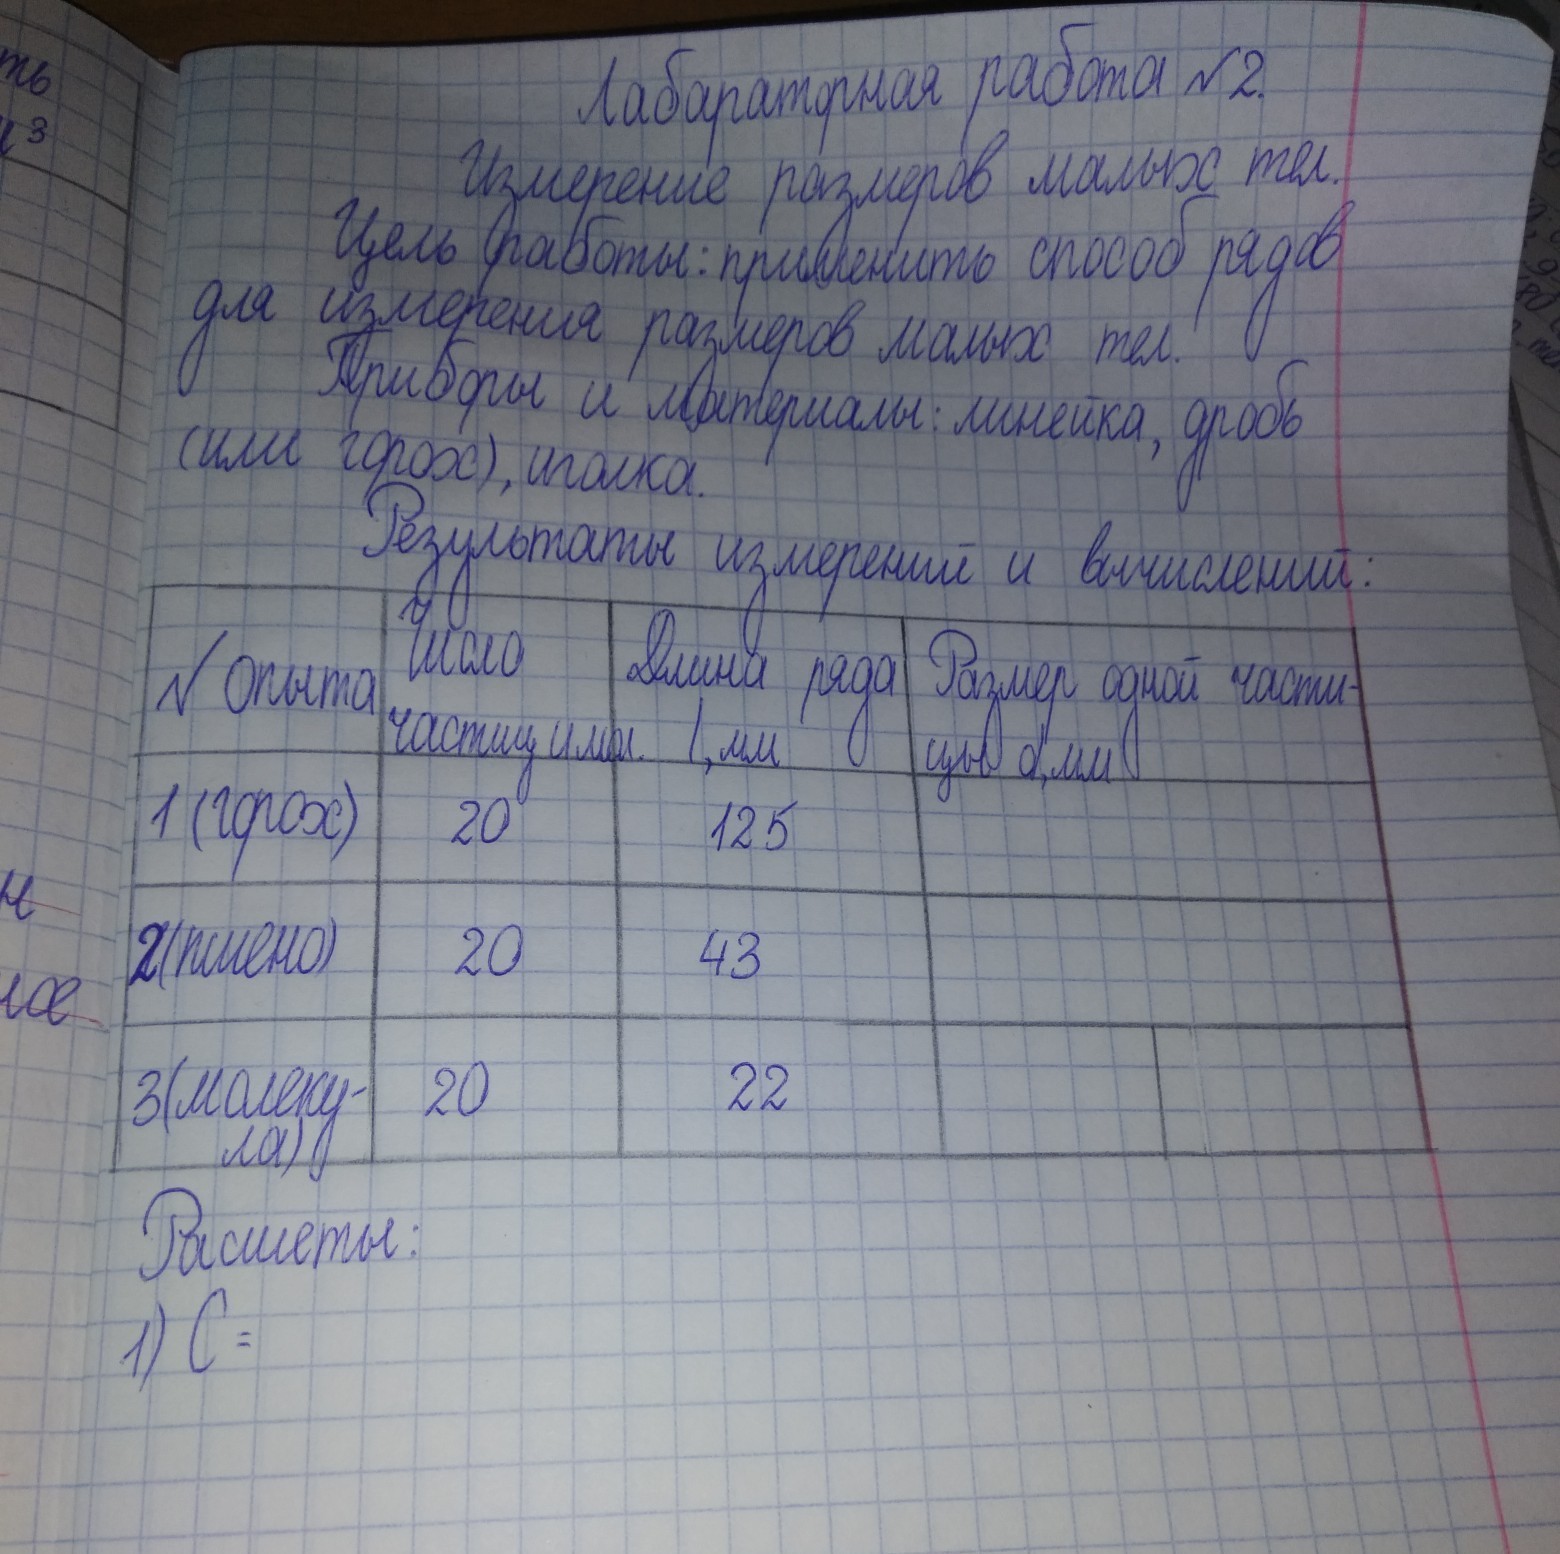 ть
³
Лабараторная работа №2.
Измерение размеров малых тел.
Цель работы: применить способ рядов
для измерения размеров малых тел.
Приборы и материалы: линейка, дробь
(или горох), иголка.
Результаты измерений и вычислений:
№ опыта Число Длина ряда Размер одной части-
частиц l, мм цы d, мм
1 (горох) 20 125
2 (пшено) 20 43
3 (молеку- 20 22
ла)
Расшеты:
1) C =